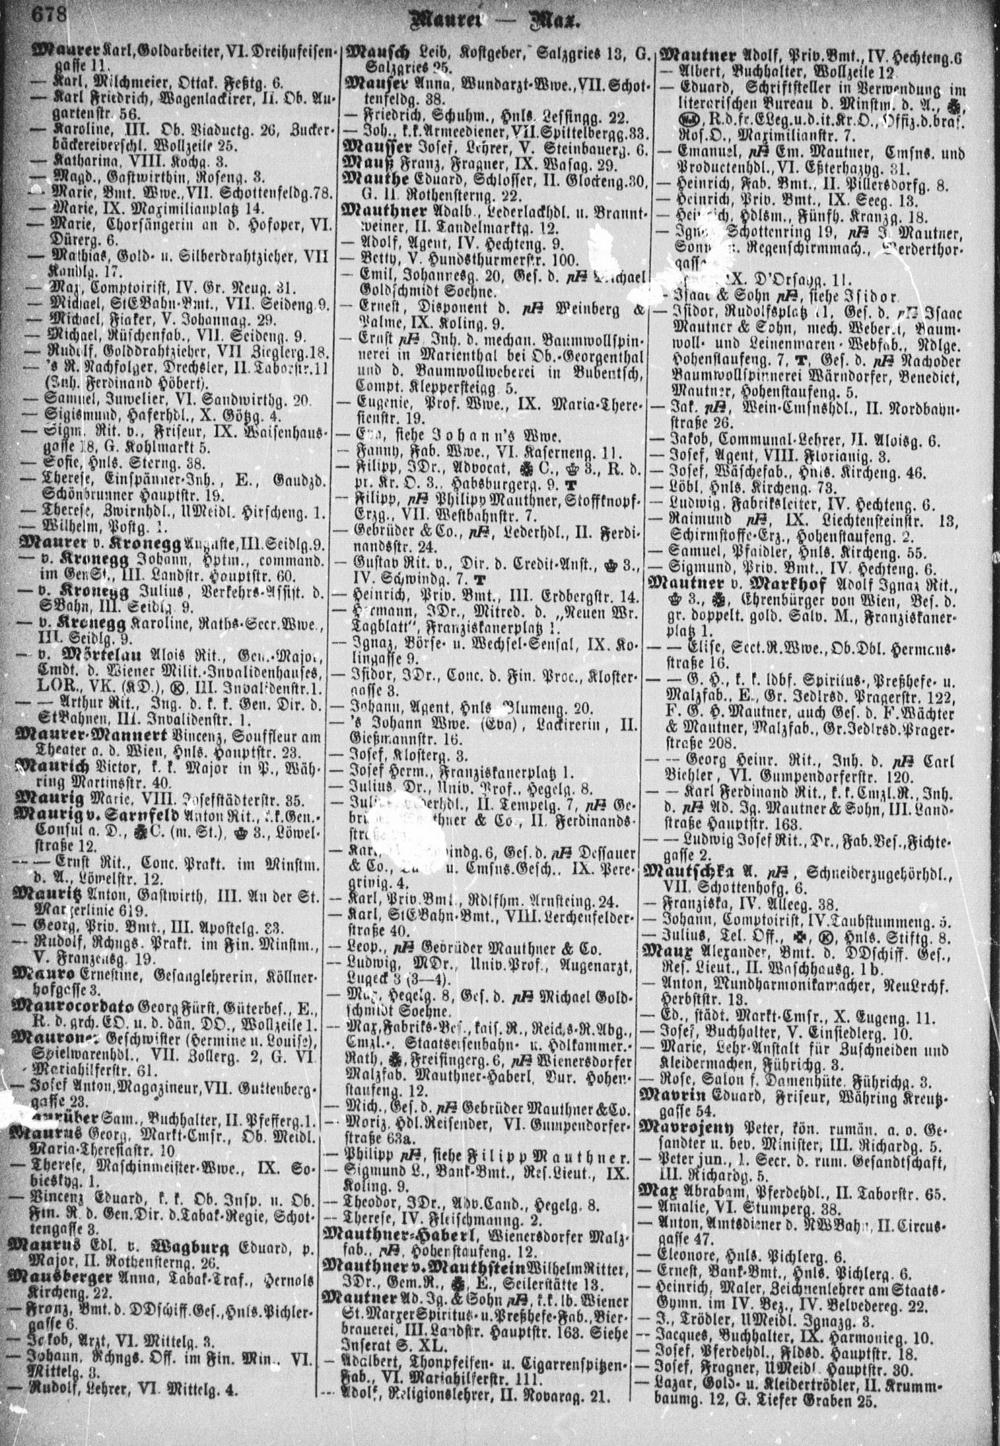 678
Maurer — Max.
Maurer Karl, Goldarbeiter, VI. Dreihufeisen-
gasse 11.
— Karl, Milchmeier, Ottak. Feßtg. 6.
— Karl Friedrich, Wagenlackirer, II. Ob. Au-
gartenstr. 56.
— Karoline, III. Ob. Viaductg. 26, Zucker-
bäckereiverschl. Wollzeile 25.
— Katharina, VIII. Kochg. 3.
— Magd., Gastwirthin, Roseng. 3.
— Marie, Bmt. Wwe., VII. Schottenfeldg. 78.
— Marie, IX. Maximilianplatz 14.
— Marie, Chorsängerin an d. Hofoper, VI.
Dürerg. 6.
— Mathias, Gold- u. Silberdrahtzieher, VII
Kandlg. 17.
— Max, Comptoirist, IV. Gr. Neug. 31.
— Michael, StEBahn-Bmt., VII. Seideng. 9.
— Michael, Fiaker, V. Johannag. 29.
— Michael, Rüschenfab., VII. Seideng. 9.
— Rudolf, Golddrahtzieher, VII Zieglerg. 18.
— 's R. Nachfolger, Drechsler, II. Taborstr. 11
(Inh. Ferdinand Höberl).
— Samuel, Juwelier, VI. Sandwirthg. 20.
— Sigismund, Haferhdl., X. Götzg. 4.
— Sigm. Rit. v., Friseur, IX. Waisenhaus-
gasse 18, G. Kohlmarkt 5.
— Sofie, Hnls. Sterng. 38.
— Therese, Einspänner-Inh., E., Gaudzd.
Schönbrunner Hauptstr. 19.
— Therese, Zwirnhdl., UMeidl. Hirscheng. 1.
— Wilhelm, Postg. 1.
Maurer v. Kronegg Auguste, III. Seidlg. 9.
— v. Kronegg Johann, Hptm., command.
im GenSt., III. Landstr. Hauptstr. 60.
— v. Kronegg Julius, Verkehrs-Assist. d.
SBahn, III. Seidlg. 9.
— v. Kronegg Karoline, Raths-Secr. Wwe.,
III. Seidlg. 9.
— v. Mörtelau Alois Rit., Gen.-Major,
Cmdt. d. Wiener Milit.-Invalidenhauses,
LOR., VK. (KD.), Ⓚ, III. Invalidenstr. 1.
— — Arthur Rit., Ing. d. k. k. Gen. Dir. d.
StBahnen, III. Invalidenstr. 1.
Maurer-Mannert Vincenz, Souffleur am
Theater a. d. Wien, Hnls. Hauptstr. 23.
Maurich Victor, k. k. Major in P., Wäh-
ring Martinsstr. 40.
Maurig Marie, VIII. Josefstädterstr. 35.
Maurig v. Sarnfeld Anton Rit., k. k. Gen.-
Consul a. D., C. (m. St.), 3., Löwel-
straße 12.
— — Ernst Rit., Conc. Prakt. im Minstm.
d. A., Löwelstr. 12.
Mauritz Anton, Gastwirth, III. An der St.
Marxerlinie 619.
— Georg, Priv. Bmt., III. Apostelg. 23.
— Rudolf, Rchngs. Prakt. im Fin. Minstm.,
V. Franzensg. 19.
Mauro Ernestine, Gesanglehrerin, Köllner-
hofgasse 3.
Maurocordato Georg Fürst, Güterbes., E.,
R. d. grch. EO. u. d. dän. DO., Wollzeile 1.
Mauroner Geschwister (Hermine u. Louise),
Spielwarenhdl., VII. Zollerg. 2, G. VI
Mariahilferstr. 61.
— Josef Anton, Magazineur, VII. Guttenberg-
gasse 23.
Sam., Buchhalter, II. Pfefferg. 1.
Maurus Georg, Markt-Cmsr., Ob. Meidl.
Maria-Theresiastr. 10
— Therese, Maschinmeister-Wwe., IX. So-
bieskyg. 1.
— Vincenz Eduard, k. k. Ob. Insp. u. Ob.
Fin. R. d. Gen. Dir. d. Tabak-Regie, Schot-
tengasse 3.
Maurus Edl. v. Wagburg Eduard, p.
Major, II. Rothensterng. 26.
Mausberger Anna, Tabak-Traf., Hernols
Kircheng. 22.
— Franz, Bmt. d. DDschiff. Ges., Hnls. Pichler-
gasse 6.
— Jakob, Arzt, VI. Mittelg. 3.
— Johann, Rchngs. Off. im Fin. Min., VI.
Mittelg. 3.
— Rudolf, Lehrer, VI. Mittelg. 4.
Mausch Leib, Kostgeber, Salzgries 13, G.
Salzgries 25.
Mauser Anna, Wundarzt-Wwe., VII. Schot-
tenfeldg. 38.
— Friedrich, Schuhm., Hnls. Lessingg. 22.
— Joh., k. k. Armeediener, VII. Spittelbergg. 33.
Mausser Josef, Lehrer, V. Steinbauerg. 6.
Mauß Franz, Fragner, IX. Wasag. 29.
Mauthe Eduard, Schlosser, II. Glockeng. 30,
G. II. Rothensterng. 22.
Mauthner Adalb., Lederlackhdl. u. Brannt-
weiner, II. Tandelmarktg. 12.
— Adolf, Agent, IV. Hechteng. 9.
— Betty, V. Hundsthurmerstr. 100.
— Emil, Johannesg. 20, Ges. d. Michael
Goldschmidt Soehne.
— Ernest, Disponent d. Weinberg &
Palme, IX. Koling. 9.
— Ernst Inh. d. mechan. Baumwollspin-
nerei in Marienthal bei Ob.-Georgenthal
und d. Baumwollweberei in Bubentsch,
Compt. Kleppersteigg. 5.
— Eugenie, Prof. Wwe., IX. Maria-There-
sienstr. 19.
— Eva, siehe Johann's Wwe.
— Fanny, Fab. Wwe., VI. Kaserneng. 11.
— Filipp, JDr., Advocat, C., 3., R. d.
pr. Kr. O. 3., Habsburgerg. 9. T
— Filipp, Philipp Mauthner, Stoffknopf-
Erzg., VII. Westbahnstr. 7.
— Gebrüder & Co., Lederhdl., II. Ferdi-
nandsstr. 24.
— Gustav Rit. v., Dir. d. Credit-Anst., 3.,
IV. Schwindg. 7. T
— Heinrich, Priv. Bmt., III. Erdbergstr. 14.
— Hermann, JDr., Mitred. d. „Neuen Wr.
Tagblatt", Franziskanerplatz 1.
— Ignaz, Börse- u. Wechsel-Sensal, IX. Ko-
lingasse 9.
— Isidor, JDr., Conc. d. Fin. Proc., Kloster-
gasse 3.
— Johann, Agent, Hnls. Blumeng. 20.
— 's Johann Wwe. (Eva), Lackirerin, II.
Gießmannstr. 16.
— Josef, Klosterg. 3.
— Josef Herm., Franziskanerplatz 1.
— Julius, Dr., Univ. Prof., Hegelg. 8.
— II. Tempelg. 7, Ge-
& Co., II. Ferdinands-
— Karl, 6, Ges. d. Dessauer
& Co., u. Cmsns. Gesch., IX. Pere-
grinig. 4.
— Karl, Priv. Bmt., Rdlfhm. Arnsteing. 24.
— Karl, StEBahn-Bmt., VIII. Lerchenfelder-
straße 40.
— Leop., Gebrüder Mauthner & Co.
— Ludwig, MDr., Univ. Prof., Augenarzt,
Lugeck 3 (3—4).
— Max, Hegelg. 8, Ges. d. Michael Gold-
schmidt Soehne.
— Max, Fabriks-Bes., kais. R., Reichs-R. Abg.,
Cmzl.-, Staatseisenbahn- u. Hdlkammer-
Rath, Freisingerg. 6, Wienersdorfer
Malzfab. Mauthner-Haberl, Bur. Hohen-
staufeng. 12.
— Mich., Ges. d. Gebrüder Mauthner & Co.
— Moriz, Hdl. Reisender, VI. Gumpendorfer-
straße 63a.
— Philipp siehe Filipp Mauthner.
— Sigmund L., Bank-Bmt., Res. Lieut., IX.
Koling. 9.
— Theodor, JDr., Adv. Cand., Hegelg. 8.
— Therese, IV. Fleischmanng. 2.
Mauthner-Haberl, Wienersdorfer Malz-
fab., Hohenstaufeng. 12.
Mauthner v. Mauthstein Wilhelm Ritter,
JDr., Gem. R., E., Seilerstätte 13.
Mautner Ad. Ig. & Sohn k. k. lb. Wiener
St. Marxer Spiritus- u. Preßhefe-Fab., Bier-
brauerei, III. Landstr. Hauptstr. 163. Siehe
Inserat S. XL.
— Adalbert, Thonpfeifen- u. Cigarrenspitzen-
Fab., VI. Mariahilferstr. 111.
— Adolf, Religionslehrer, II. Novarag. 21.
Mautner Adolf, Priv. Bmt., IV. Hechteng. 6
— Albert, Buchhalter, Wollzeile 12
— Eduard, Schriftsteller in Verwendung im
literarischen Bureau d. Minstm. d. A.,
R. d. fr. ELeg. u. d. it. Kr. O., Offiz. d. bras.
Ros. O., Maximilianstr. 7.
— Emanuel, Em. Mautner, Cmsns. und
Productenhdl., VI. Eßterhazyg. 31.
— Heinrich, Fab. Bmt., II. Pillersdorfg. 8.
— Heinrich, Priv. Bmt., IX. Seeg. 13.
— Heinrich, Hdlsm., Fünfh. Kranzg. 18.
— Schottenring 19, J. Mautner,
Regenschirmmach., Werderthor-
gasse
IX. D'Orsayg. 11.
— Isaac & Sohn siehe Isidor
— Isidor, Rudolfsplatz 11, Ges. d. Isaac
Mautner & Sohn, mech. Weberei, Baum-
woll- und Leinenwaren-Webfab., Ndlge.
Hohenstaufeng. 7, T, Ges. d. Nachoder
Baumwollspinnerei Wärndorfer, Benedict,
Mautner, Hohenstaufeng. 5.
— Jak. Wein-Cmsnshdl., II. Nordbahn-
straße 26.
— Jakob, Communal-Lehrer, II. Aloisg. 6.
— Josef, Agent, VIII. Florianig. 3.
— Josef, Wäschefab., Hnls. Kircheng. 46.
— Löbl, Hnls. Kircheng. 73.
— Ludwig, Fabriksleiter, IV. Hechteng. 6.
— Raimund IX. Liechtensteinstr. 13,
Schirmstoffe-Erz., Hohenstaufeng. 2.
— Samuel, Pfaidler, Hnls. Kircheng. 55.
— Sigmund, Priv. Bmt., IV. Hechteng. 6.
Mautner v. Markhof Adolf Ignaz Rit.,
3., Ehrenbürger von Wien, Bes. d.
gr. doppelt. gold. Salv. M., Franziskaner-
platz 1.
— — Elise, Sect. R. Wwe., Ob. Dbl. Hermanns-
straße 16.
— — G. H., k. k. ldbf. Spiritus-, Preßhefe- u.
Malzfab., E., Gr. Jedlrsd. Pragerstr. 122,
F. G. H. Mautner, auch Ges. d. F. Wächter
& Mautner, Malzfab., Gr. Jedlrsd. Prager-
straße 208.
— — Georg Heinr. Rit., Inh. d. Carl
Biehler, VI. Gumpendorferstr. 120.
— — Karl Ferdinand Rit., k. k. Cmzl. R., Inh.
d. Ad. Ig. Mautner & Sohn, III. Land-
straße Hauptstr. 163.
— — Ludwig Josef Rit., Dr., Fab. Bes., Fichte-
gasse 2.
Mautschka A. Schneiderzugehörhdl.,
VII. Schottenhofg. 6.
— Franziska, IV. Alleeg. 38.
— Johann, Comptoirist, IV. Taubstummeng. 5.
— Julius, Tel. Off., Ⓚ, Hnls. Stiftg. 8.
Maux Alexander, Bmt. d. DDschiff. Ges.,
Res. Lieut., II. Waschhausg. 1b.
— Anton, Mundharmonikamacher, NeuLrchf.
Herbststr. 13.
— Ed., städt. Markt-Cmsr., X. Eugeng. 11.
— Josef, Buchhalter, V. Einsiedlerg. 10.
— Marie, Lehr-Anstalt für Zuschneiden und
Kleidermachen, Führichg. 3.
— Rose, Salon f. Damenhüte, Führichg. 3.
Mavrin Eduard, Friseur, Währing Kreuz-
gasse 54.
Mavrojeny Peter, kön. rumän. a. o. Ge-
sandter u. bev. Minister, III. Richardg. 5.
— Peter jun., 1. Secr. d. rum. Gesandtschaft,
III. Richardg. 5.
Max Abraham, Pferdehdl., II. Taborstr. 65.
— Amalie, VI. Stumperg. 38.
— Anton, Amtsdiener d. NWBahn, II. Circus-
gasse 47.
— Eleonore, Hnls. Pichlerg. 6.
— Ernest, Bank-Bmt., Hnls. Pichlerg. 6.
— Heinrich, Maler, Zeichnenlehrer am Staats-
Gymn. im IV. Bez., IV. Belvedereg. 22.
— J., Trödler, UMeidl. Ignazg. 3.
— Jacques, Buchhalter, IX. Harmonieg. 10.
— Josef, Pferdehdl., Fldsd. Hauptstr. 18.
— Josef, Fragner, UMeidl. Hauptstr. 30.
— Lazar, Gold- u. Kleidertrödler, II. Krumm-
baumg. 12, G. Tiefer Graben 25.